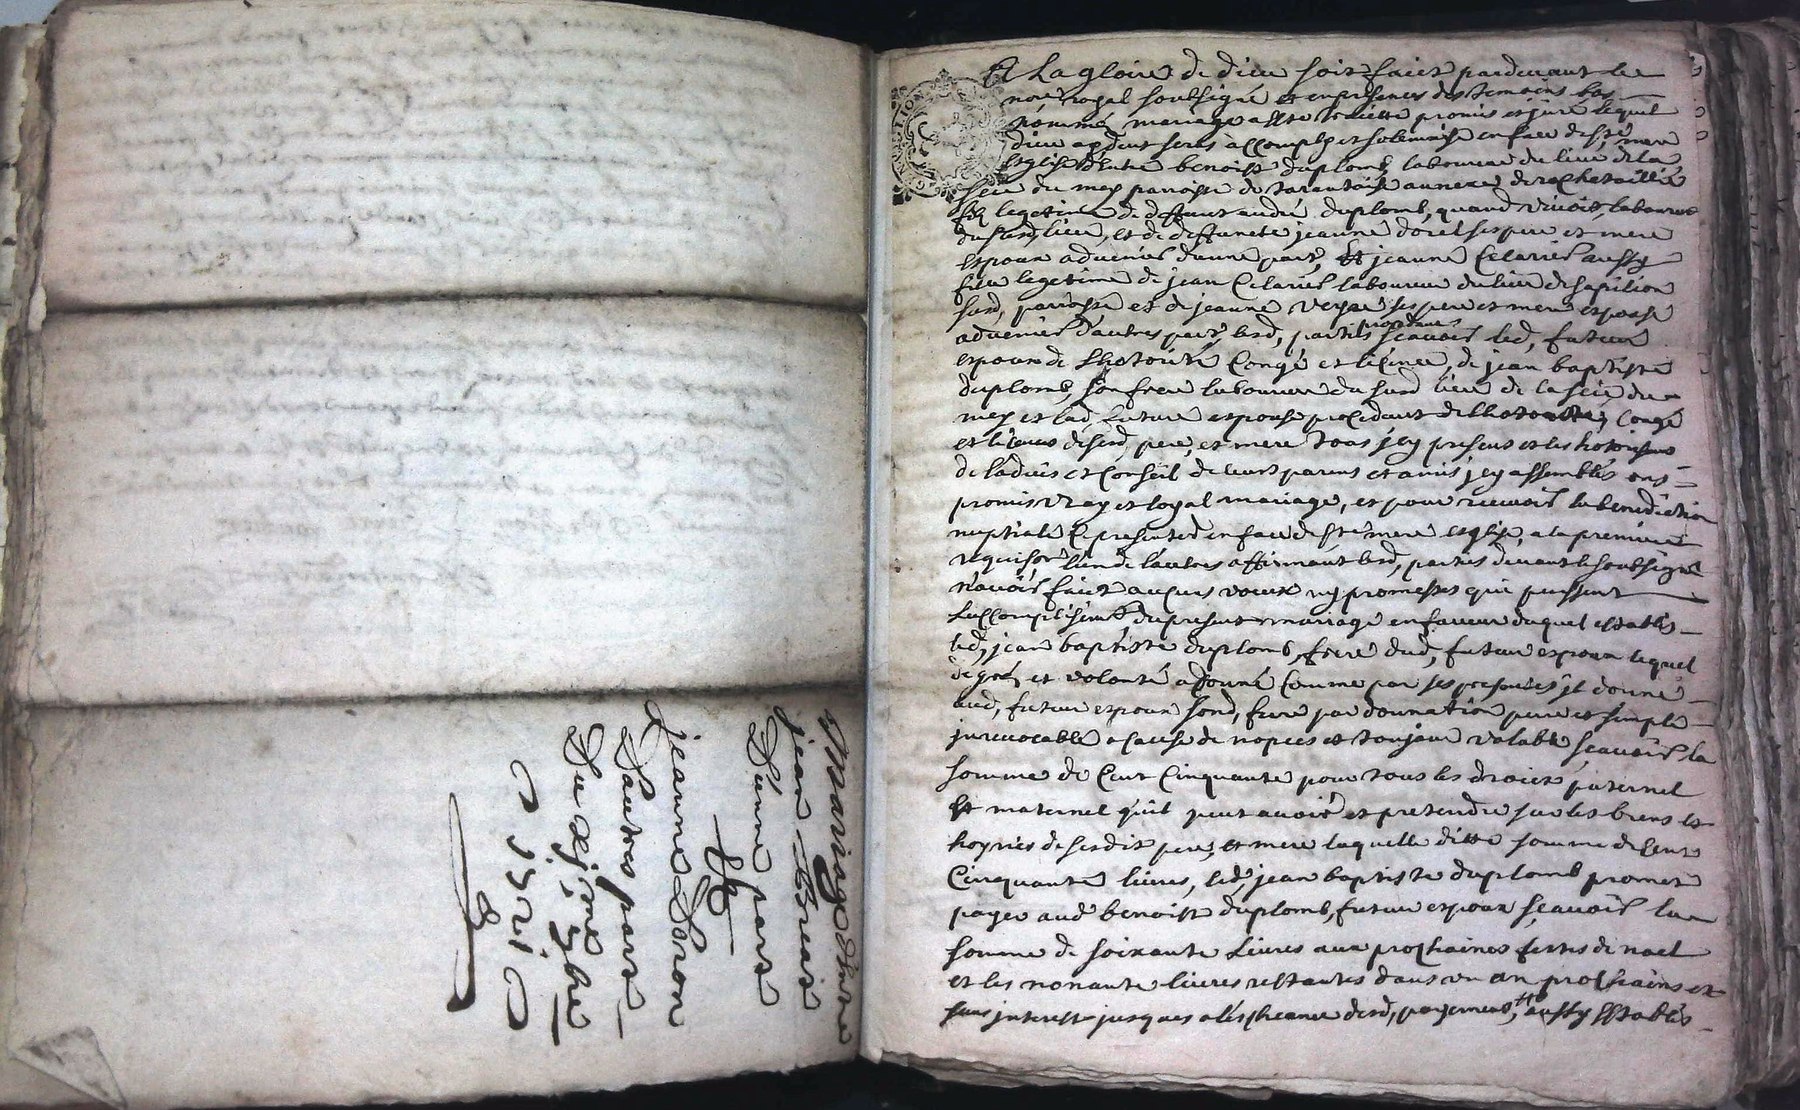 Mariage dentre
jean
Dune part
Et
jeanne Soron
Dautres part
Du xj.me 9bre
1721
GENERATION
A La gloire de dieu soit faict pardevant le
no.re royal soubsigné et en presences des temoins bas
nommés mariage a esté traicté promis et juré lequel
dieu aydant sera accomply et solemnisé en face de s.te mere
Esglise Entre benoist duplomb laboureur du lieu de la
Scie du mey paroisse de tarantaise annexe de rochetaillie
filz legitime de deffunt andré duplomb, quand vivoit laboureur
dud lieu, et de deffuncte jeanne doret ses pere et mere
espoux advenir dune part, Et jeanne Celarier aussy
fille legitime de jean Celarier laboureur du lieu
susd, parroisse et de jeanne ses pere et mere espouse
advenir dautres part, lesd, parties procedant scavoir led, futeur
espoux de lhotorité Congé et licence, de jean baptiste
duplomb, son frere laboureur du susd lieu de la scie du
mey et lad, future espouse procedant de lhotorité, Congé
et licence desesd, pere, et mere tous jcy presens et les hotorisans
de ladvis et Conseil de leurs parens et amis jcy assemblés ons
promis vray et loyal mariage, et pour recevoir la benediction
nuptiale Ce presenter en face de s.te mere esglise, a la premiere
requis.on lun de lautres affirmant lesd, parties devant le soubsigné
navoir faict aucuns voeux ny promesses qui pussent
Laccomplisem.t du present mariage en faveur duquel estably
led, jean baptiste duplomb, frere dud, futeur espoux lequel
de gré, et volonté a donné Comme par ses presentes jl donne
aud, futeur espoux sond, frere par donnation pure et simple
jrrevocable a cause de nopces et toujour valable scavoir la
somme de Cent Cinquante pour tous les droict paternel
Et maternel quil peut avoir et pretendre sur les biens et
hoyries de sesdit pere, et mere laquelle ditte somme de Cent
Cinquante livres, led, jean baptiste duplomb promet
payer aud benoist duplomb, futeur espoux scavoir la
somme de soixante Livres aux prochaines festes de noel
et les nonante livres restantes dans un an prochains et
sans jnterest jusques a lescheance desd, payements, aussy Establis